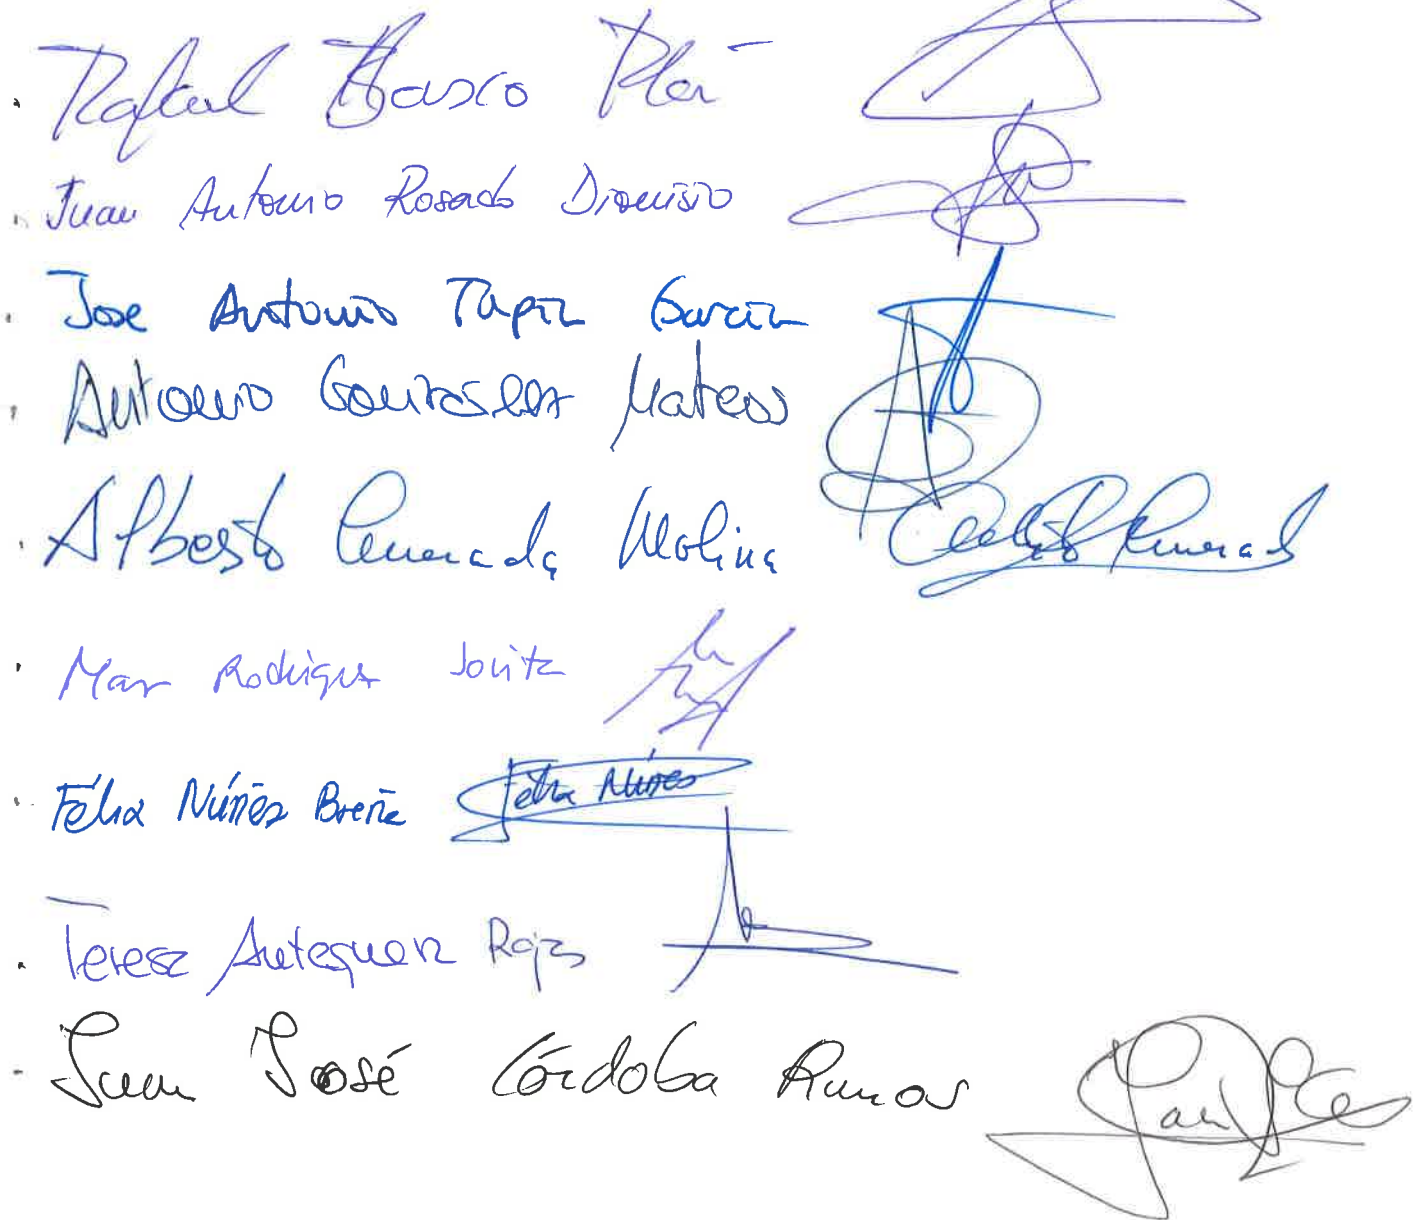 Rafael Blasco Pla
Juan Antonio Rosado Dionisio
Jose Antonio Tapia Garcia
Antonio González Mateos
Alberto Molina
Mar Rodriguez
Félix Núñez Félix Núñez
Teresa Antequera Rojas
Juan José Córdoba Ramos